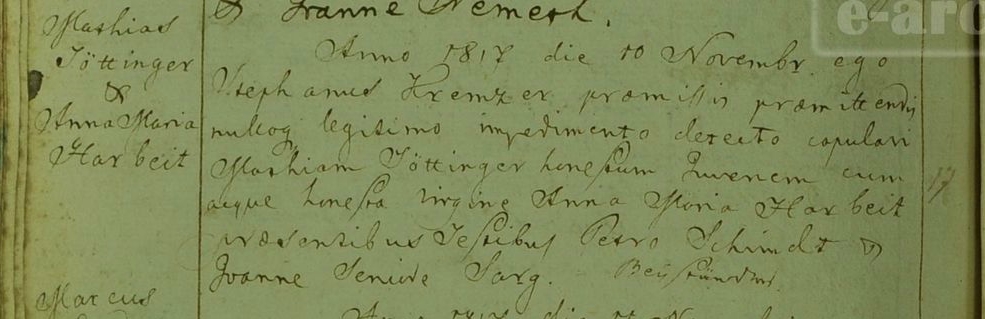 & Joanne Nemeth.
Mathias
Töttinger
&
Anna Maria
Harbeit
Anno 1817 die 10 Novembr ego
Stephanus Kremzer præmissis præmittendis
nulloq legitimo impedimento detecto copulavi
Mathiam Töttinger honestum Juvenem cum
æque honesta virgine Anna Maria Harbeit
præsentibus Testibus Petro Schimdt &
Joanne Seniore Sarg.
17
Marcus
e-arc